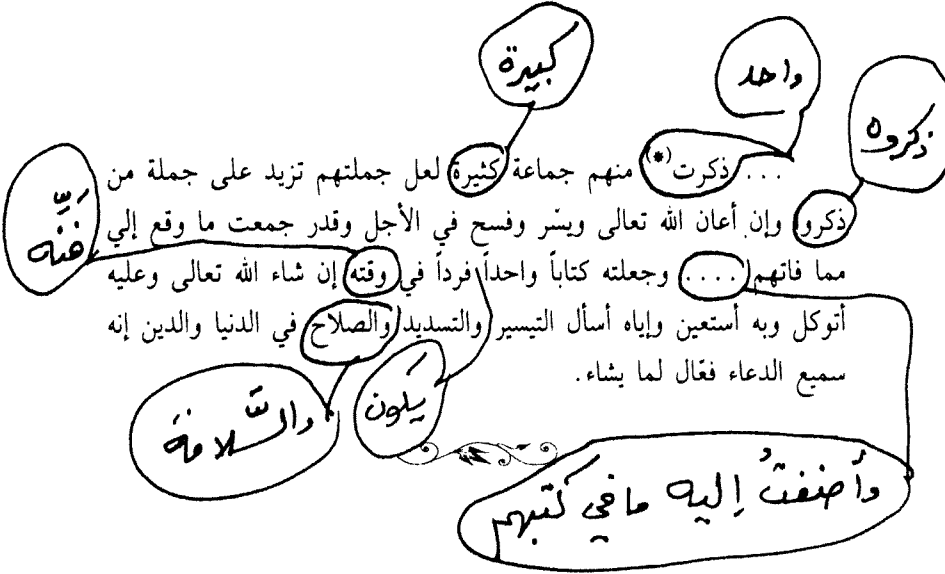 كبيرة
واحد
ذكروه
... ذكرت(*) منهم جماعة كثيرة لعل جملتهم تزيد على جملة من
ذكروا وإن أعان الله تعالى ويسّر وفسح في الأجل وقدر جمعت ما وقع إلي
مما فاتهم .... وجعلته كتاباً واحداً فرداً في وقته إن شاء الله تعالى وعليه
أتوكل وبه أستعين وإياه أسأل التيسير والتسديد والصلاح في الدنيا والدين إنه
سميع الدعاء فعّال لما يشاء.
يكون
والسّلامة
وأضفتُ إليه ما في كتبهم